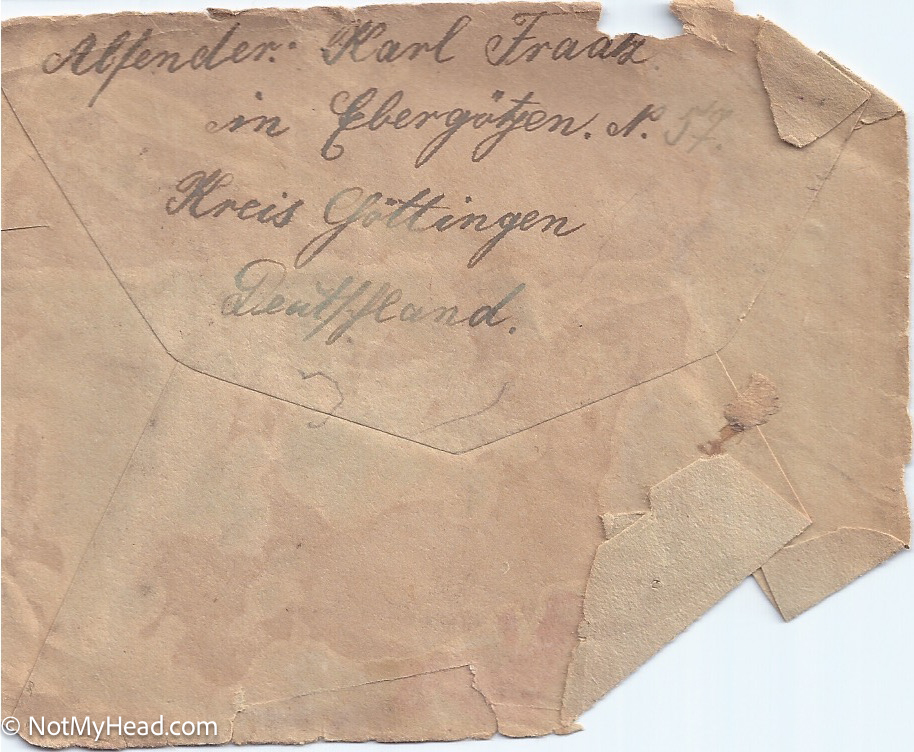 Absender: Karl Fraatz
in Ebergötzen. N. 57.
Kreis Göttingen
Deutschland.
© NotMyHead.com